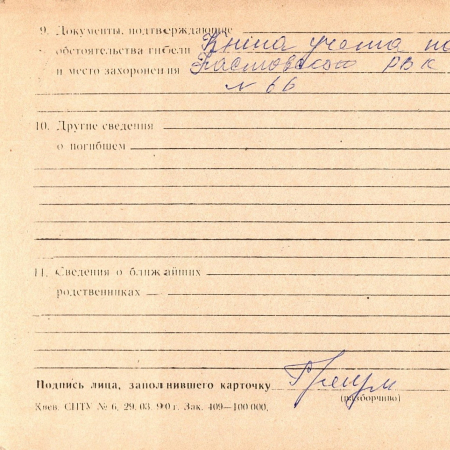 9. Документы, подтверждающие
обстоятельства гибели Книга учета по
и место захоронения Фастовского РВК
№ 66
10. Другие сведения
о погибшем
11. Сведения о ближайших
родственниках
Подпись лица, заполнившего карточку
(разборчиво)
Киев. СПТУ № 6, 29. 03. 90 г. Зак. 409—100 000.